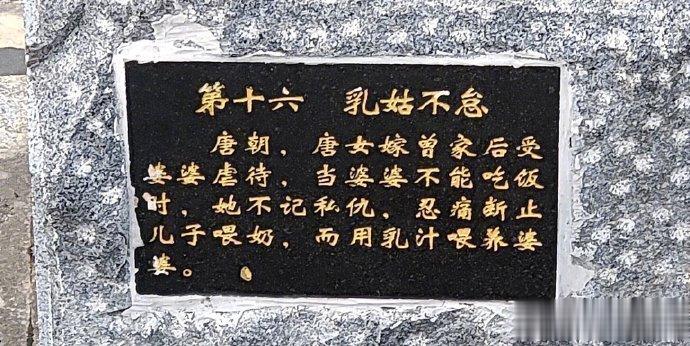 第十六 乳姑不怠
唐朝，唐女嫁曾家后受
婆婆虐待，当婆婆不能吃饭
时，她不记私仇，忍痛断止
儿子喂奶，而用乳汁喂养婆
婆。